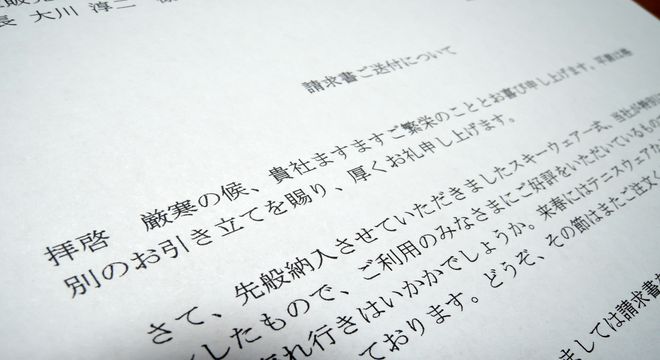 長 大川 淳二 様
請求書ご送付について
拝啓 厳寒の候、貴社ますますご繁栄のこととお喜び申し上げます。平素は格
別のお引き立てを賜り、厚くお礼申し上げます。
さて、先般納入させていただきましたスキーウェアー式、当社が特別に
したもので、ご利用のみなさまにご好評をいただいているもので
れ行きはいかがでしょうか。来春にはテニスウェアな
ております。どうぞ、その節はまたご注文く
ましては請求書を